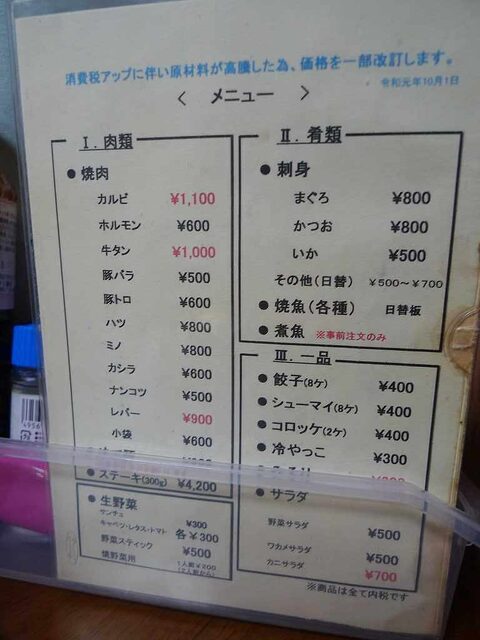 消費税アップに伴い原材料が高騰した為、価格を一部改訂します。
令和元年10月1日
< メニュー >
Ⅰ. 肉類
● 焼肉
カルビ ¥1,100
ホルモン ¥600
牛タン ¥1,000
豚バラ ¥500
豚トロ ¥600
ハツ ¥800
ミノ ¥800
カシラ ¥600
ナンコツ ¥500
レバー ¥900
小袋 ¥600
● ステーキ(300g) ¥4,200
● 生野菜
サンチュ ¥300
キャベツ・レタス・トマト 各¥300
野菜スティック ¥500
焼野菜用 1人前¥200
(2人前から)
Ⅱ. 肴類
● 刺身
まぐろ ¥800
かつお ¥800
いか ¥500
その他(日替) ¥500～¥700
● 焼魚(各種) 日替板
● 煮魚 ※事前注文のみ
Ⅲ. 一品
● 餃子(8ケ) ¥400
● シューマイ(8ケ) ¥400
● コロッケ(2ケ) ¥400
● 冷やっこ ¥300
● サラダ
野菜サラダ ¥500
ワカメサラダ ¥500
カニサラダ ¥700
※商品は全て内税です